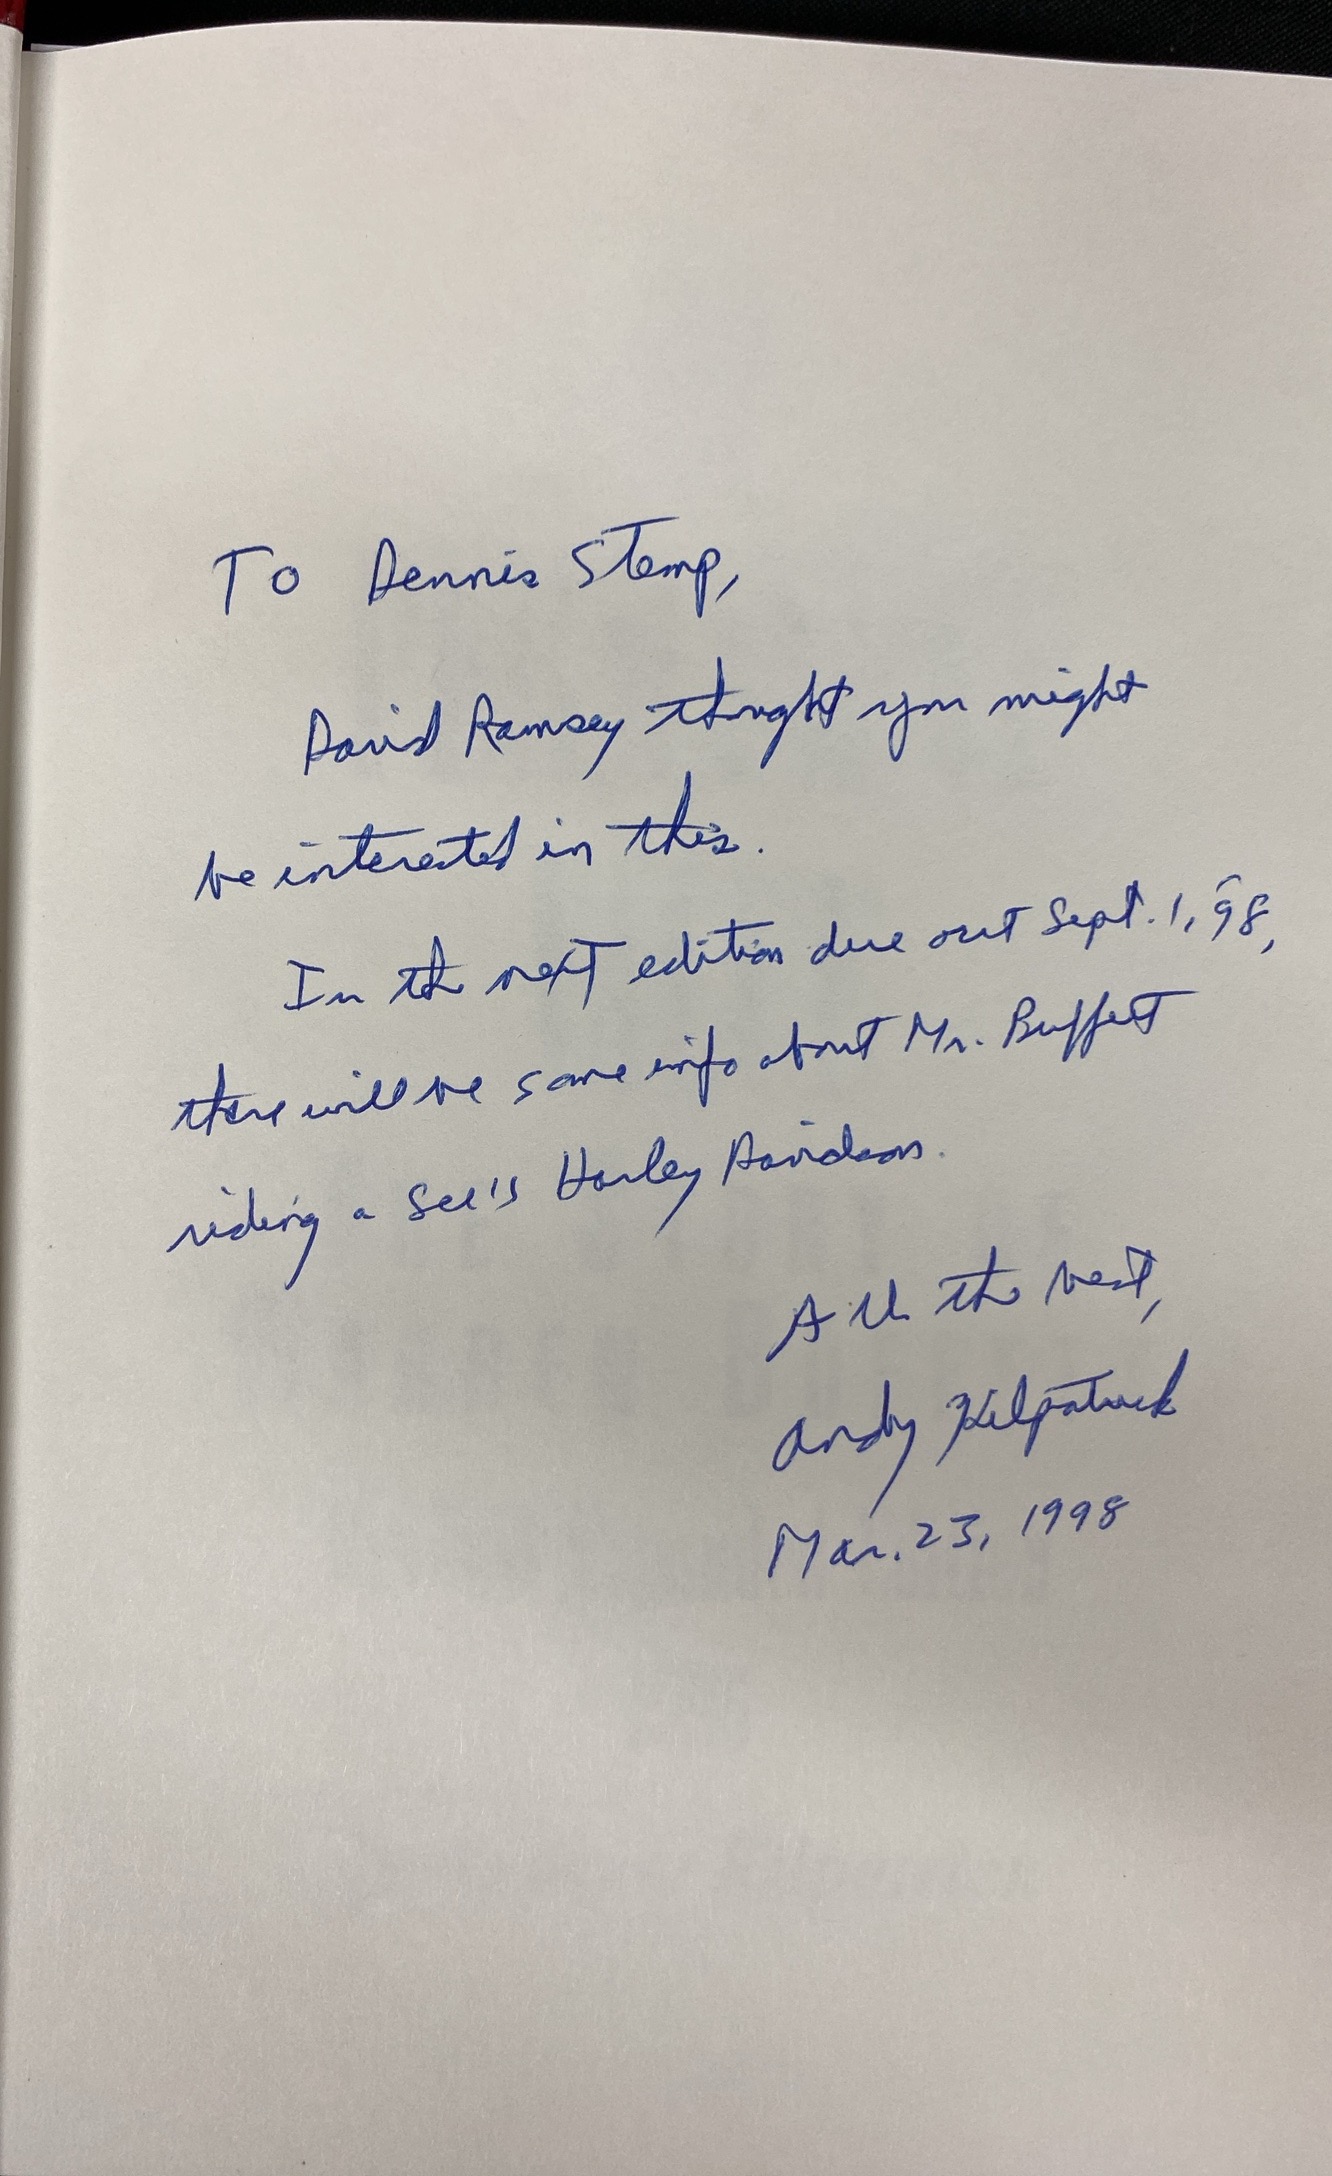 To Dennis Stemp,
David Ramsey thought you might
be interested in this.
In the next edition due out Sept. 1, '98,
there will be some info about Mr. Buffett
riding a See's Harley Davidson.
All the best,
Andy Kilpatrick
Mar. 23, 1998